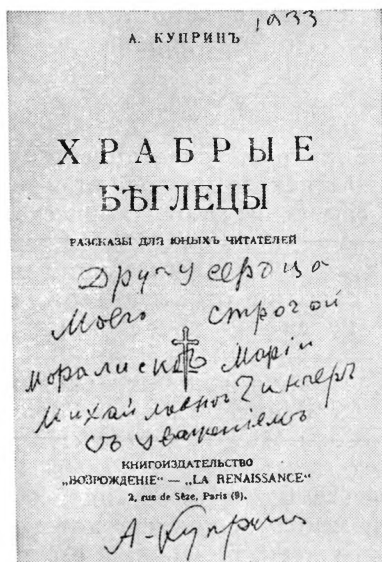 1933
А. КУПРИНЪ
ХРАБРЫЕ
БѢГЛЕЦЫ
РАЗСКАЗЫ ДЛЯ ЮНЫХЪ ЧИТАТЕЛЕЙ
Другу сердца
моего строгой
моралисткѣ Маріи
Михайловнѣ
съ уваженіемъ
КНИГОИЗДАТЕЛЬСТВО
„ВОЗРОЖДЕНІЕ“ — „LA RENAISSANCE“
2, rue de Sèze, Paris (9).
А. Купринъ